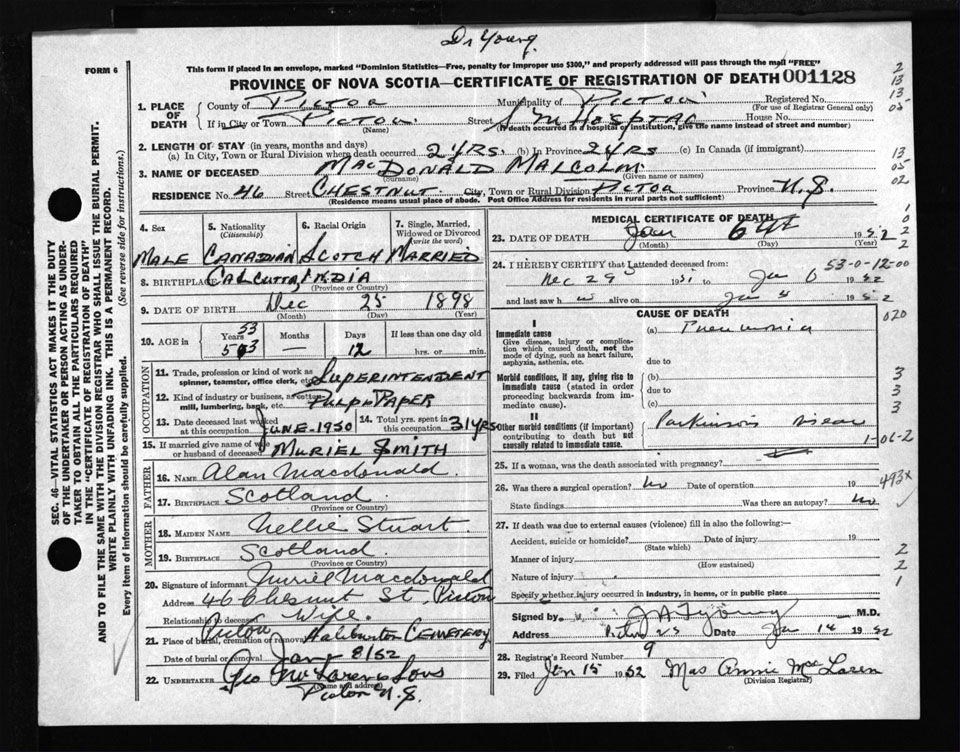 Dr Young
FORM 6
This form if placed in an envelope, marked "Dominion Statistics—Free, penalty for improper use $300," and properly addressed will pass through the mail "FREE"
PROVINCE OF NOVA SCOTIA—CERTIFICATE OF REGISTRATION OF DEATH 001128
1. PLACE OF DEATH
County of Pictou Municipality of Pictou Registered No.
(For use of Registrar General only)
If in City or Town Pictou Street S M Hosptal House No.
(Name) (If death occurred in a hospital or institution, give the name instead of street and number)
2. LENGTH OF STAY (in years, months and days)
(a) In City, Town or Rural Division where death occurred 24 yrs. (b) In Province 24 yrs (c) In Canada (if immigrant)
3. NAME OF DECEASED MacDonald Malcolm
(Surname) (Given name or names)
RESIDENCE No. 46 Street Chestnut City, Town or Rural Division Pictou Province N.S.
(Residence means usual place of abode. Post Office Address for residents in rural parts not sufficient)
4. Sex 5. Nationality (Citizenship) 6. Racial Origin 7. Single, Married, Widowed or Divorced (write the word)
Male Canadian Scotch Married
8. BIRTHPLACE Calcutta India
(Province or Country)
9. DATE OF BIRTH Dec 25 1898
(Month) (Day) (Year)
10. AGE in Years Months Days If less than one day old
53 — 12 hrs. or min.
OCCUPATION
11. Trade, profession or kind of work as spinner, teamster, office clerk, etc. Superintendent
12. Kind of industry or business, as cotton mill, lumbering, bank, etc. Pulp & Paper
13. Date deceased last worked at this occupation June-1950 14. Total yrs. spent in this occupation 31 yrs
15. If married give name of wife or husband of deceased Muriel Smith
FATHER
16. NAME Alan Macdonald.
17. BIRTHPLACE Scotland.
(Province or Country)
MOTHER
18. MAIDEN NAME Nellie Stuart
19. BIRTHPLACE Scotland.
(Province or Country)
20. Signature of informant Muriel Macdonald
Address 46 Chesnut St. Pictou
Relationship to deceased Wife.
Pictou
21. Place of burial, cremation or removal Haliburton Cemetery
Date of burial or removal Jany 8/52
22. UNDERTAKER Geo McLaren & Sons
(Name and address)
Pictou N.S.
MEDICAL CERTIFICATE OF DEATH
23. DATE OF DEATH Jan 6th 1952
(Month) (Day)
24. I HEREBY CERTIFY that I attended deceased from: 53-0-12-00
Dec 29 1951 to Jan 6 1952
and last saw h alive on Jan 1952
CAUSE OF DEATH
I
Immediate cause
Give disease, injury or complication which caused death, not the mode of dying, such as heart failure, asphyxia, asthenia, etc.
(a) Pneumonia
due to
Morbid conditions, if any, giving rise to immediate cause (stated in order proceeding backwards from immediate cause).
(b)
due to
(c)
II
Other morbid conditions (if important) contributing to death but not causally related to immediate cause.
Parkinsons Disease
1-06-2
25. If a woman, was the death associated with pregnancy?
26. Was there a surgical operation? No Date of operation 19
State findings Was there an autopsy? No
493x
27. If death was due to external causes (violence) fill in also the following:—
Accident, suicide or homicide? Date of injury 19
(State which)
Manner of injury
(How sustained)
Nature of injury
Specify whether injury occurred in industry, in home, or in public place
Signed by M.D.
Address Pictou NS Date Jan 14 1952
28. Registrar's Record Number 9
29. Filed Jan 15 1952 Mrs Annie McLaren
(Division Registrar)
SEC. 46—VITAL STATISTICS ACT MAKES IT THE DUTY
OF THE UNDERTAKER OR PERSON ACTING AS UNDER-
TAKER TO OBTAIN ALL THE PARTICULARS REQUIRED
IN THE "CERTIFICATE OF REGISTRATION OF DEATH"
AND TO FILE THE SAME WITH THE DIVISION REGISTRAR WHO SHALL ISSUE THE BURIAL PERMIT.
WRITE PLAINLY WITH UNFADING INK. THIS IS A PERMANENT RECORD.
Every item of information should be carefully supplied. (See reverse side for instructions.)
2
13
13
05
13
05
02
1
0
2
2
020
3
3
3
2
2
1